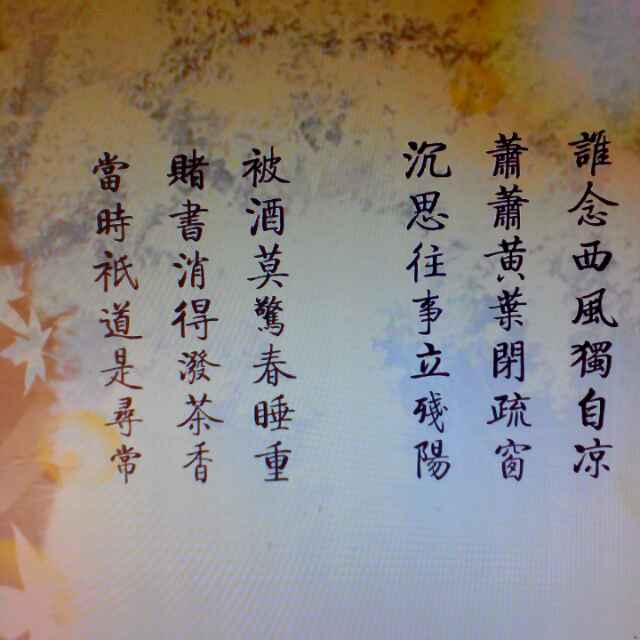 誰念西風獨自凉
蕭蕭黄葉閉疏窗
沉思往事立殘陽
被酒莫驚春睡重
賭書消得潑茶香
當時祇道是尋常